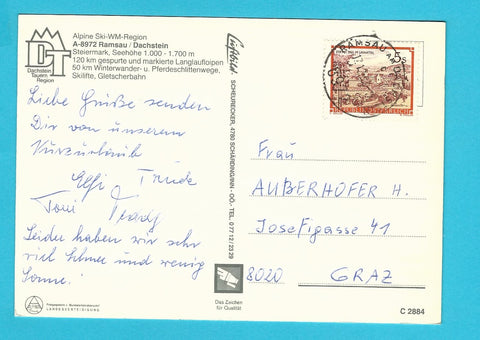 Alpine Ski-WM-Region
A-8972 Ramsau / Dachstein
Steiermark, Seehöhe 1.000 - 1.700 m
120 km gespurte und markierte Langlaufloipen
50 km Winterwander- u. Pferdeschlittenwege,
Skilifte, Gletscherbahn
DT
Dachstein
Tauern
Region
Liebe Grüße senden
Dir von unserem
Kurzurlaub
Elfi Trude
Toni
Leider haben wir sehr
viel Schnee und wenig
Sonne!
LANDESVERTEIDIGUNG
SCHEURECKER, 4780 SCHÄRDING/INN - OÖ. - TEL. 0 77 12 / 23 29
Das Zeichen
für Qualität
RAMSAU AM
REPUBLIK ÖSTERREICH
Frau
AUßERHOFER H.
Josefigasse 41
8020 GRAZ
C 2884